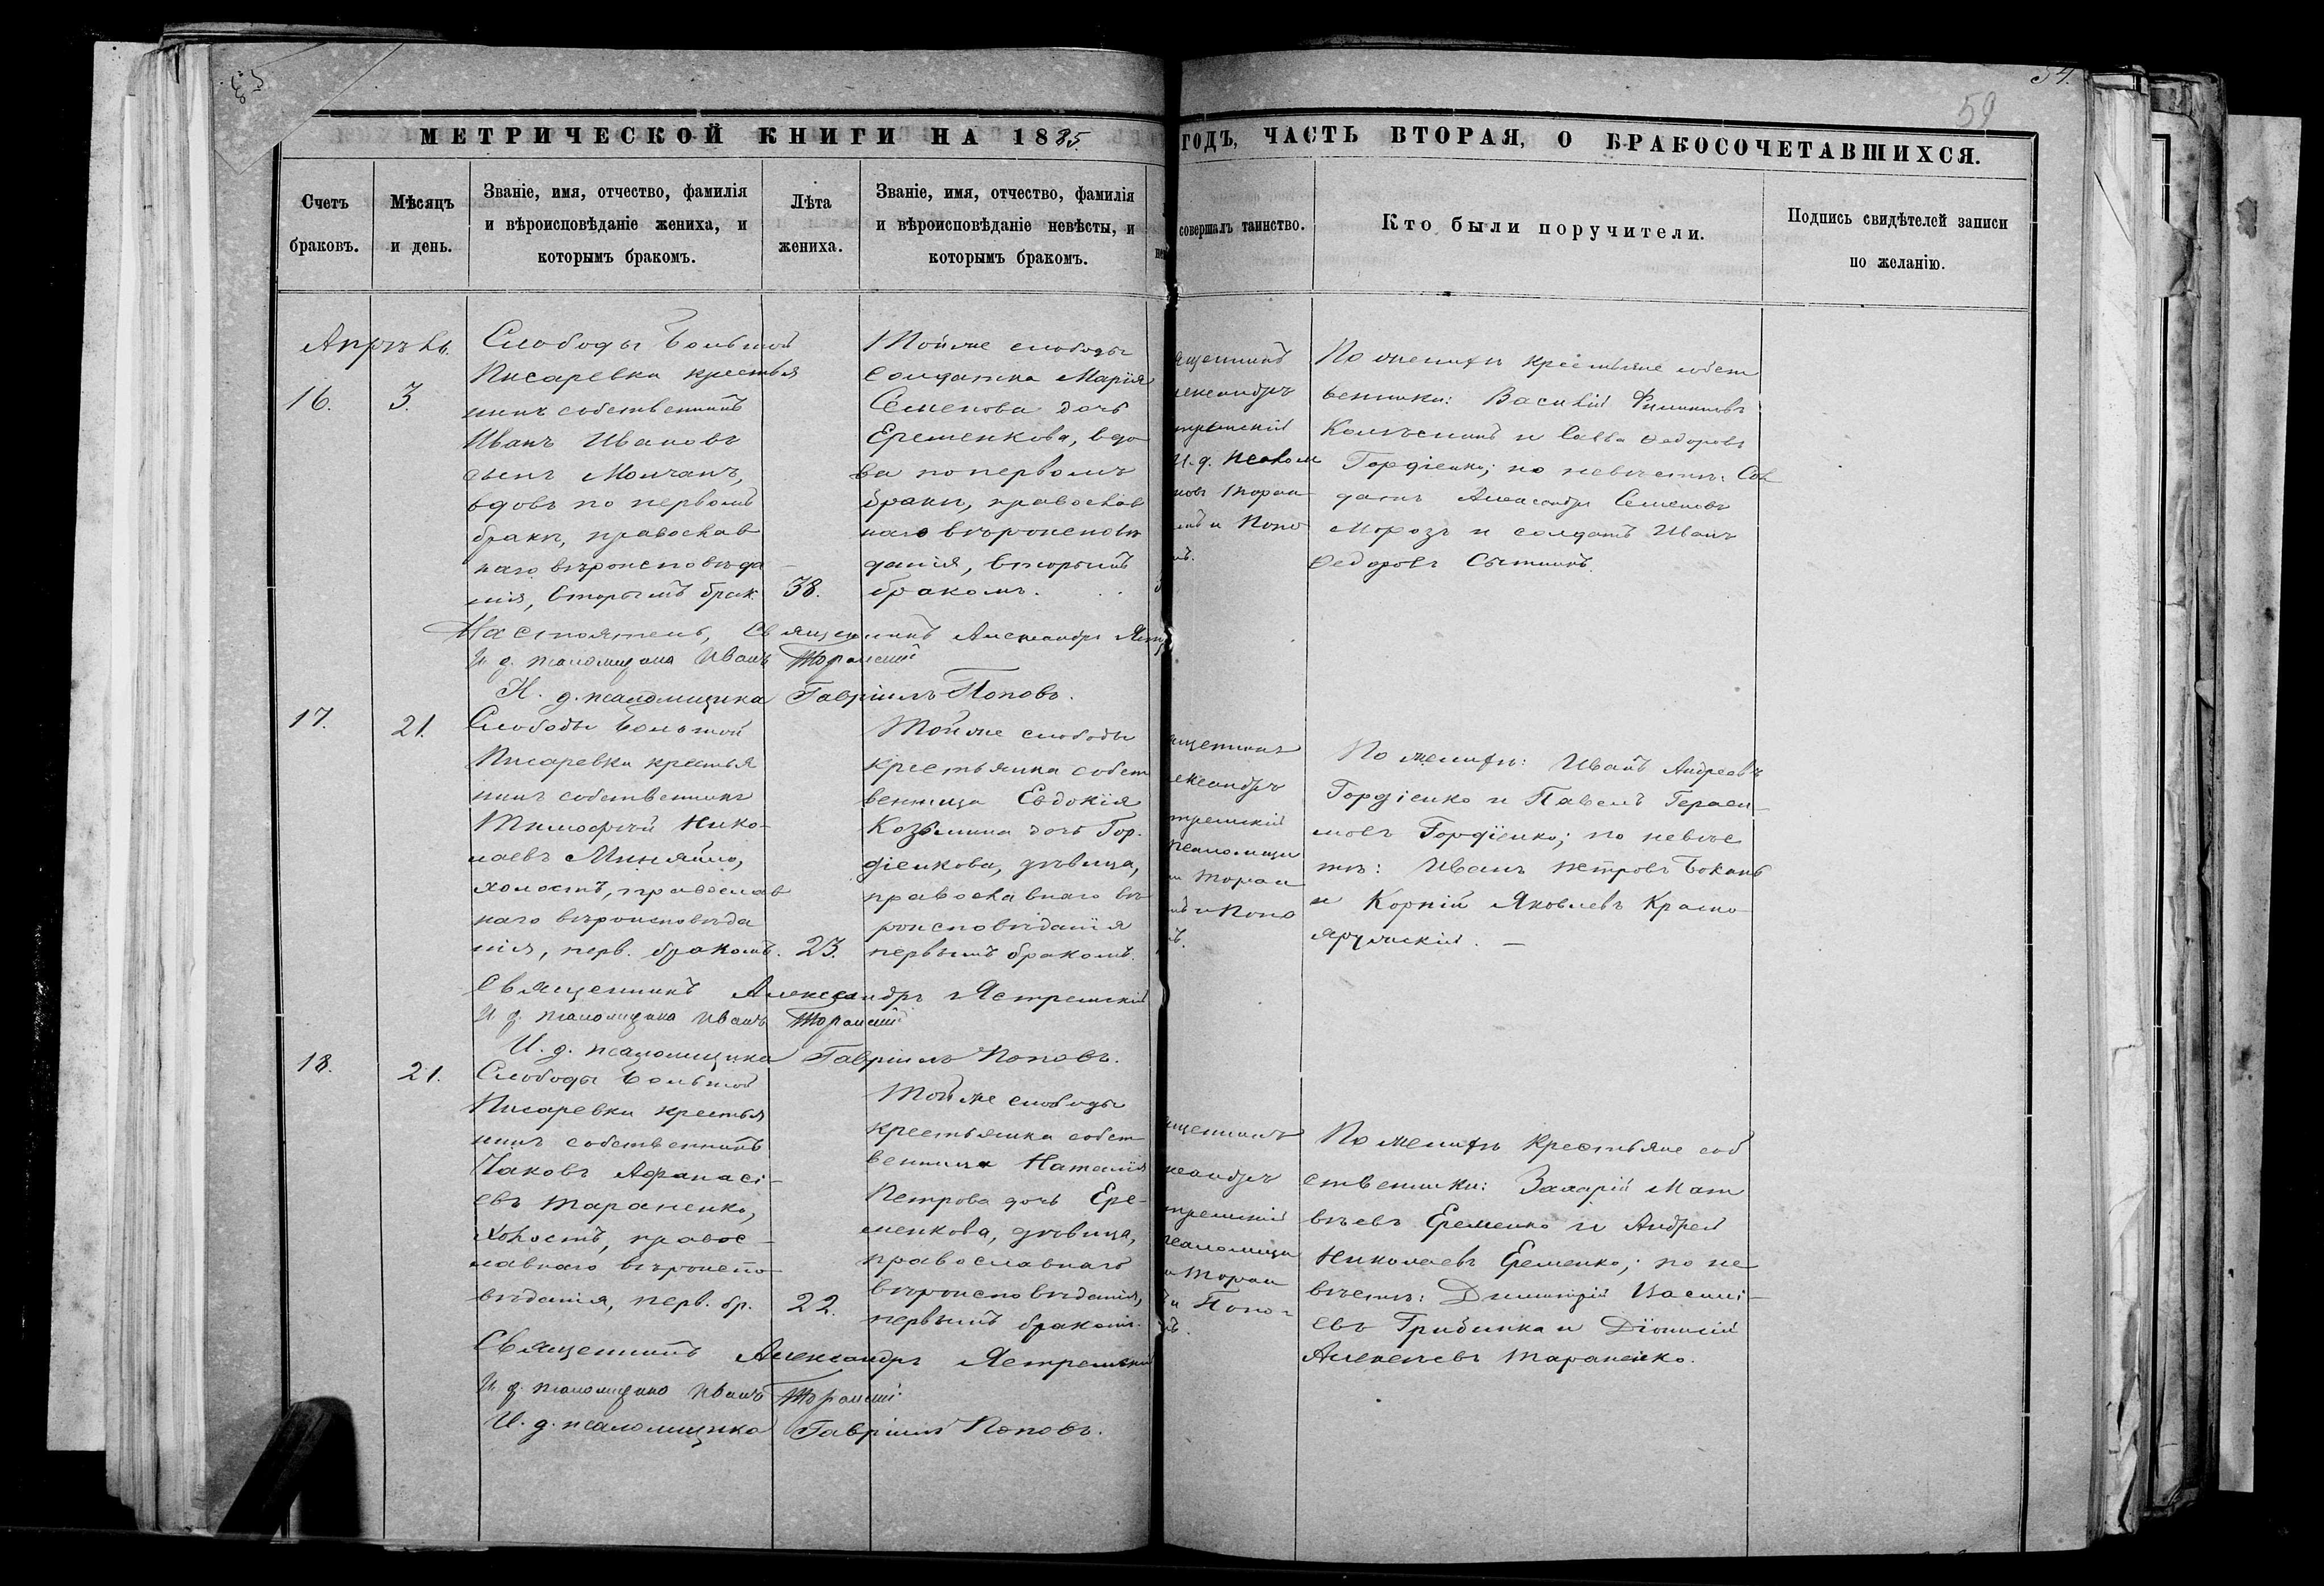 54.
59
МЕТРИЧЕСКОЙ КНИГИ НА 1885. ГОДЪ, ЧАСТЬ ВТОРАЯ, О БРАКОСОЧЕТАВШИХСЯ.
Счетъ
браковъ.
Мѣсяцъ
и день.
Званіе, имя, отчество, фамилія
и вѣроисповѣданіе жениха, и
которымъ бракомъ.
Лѣта
жениха.
Званіе, имя, отчество, фамилія
и вѣроисповѣданіе невѣсты, и
которымъ бракомъ.
совершалъ таинство.
Кто были поручители.
Подпись свидѣтелей записи
по желанію.
Апрѣль.
16.
3.
Слободы Большой
Писаревки крестья
нинъ собственникъ
Иванъ Ивановъ
сынъ Молчанъ,
вдовъ по первомъ
бракѣ, православ
наго вѣроисповѣда
нія, вторымъ брак.
38.
Той же слободы
солдатка Марія
Семенова дочь
Еременкова, вдо
ва по первомъ
бракѣ, православ
наго вѣроисповѣ
данія, вторымъ
бракомъ.
ященникъ
лександръ
тремскій
И. д. псалом
новъ Торан
мъ и Попо
По женихѣ крестьяне собст
венники: Василій Филиповъ
Колѣсникъ и Савва Ѳедоровъ
Гордіенко; по невѣстѣ: Сол
датъ Александръ Семеновъ
Морозъ и солдатъ Иванъ
Ѳедоровъ Сытникъ.
Настоятель, Священникъ Александръ Яст
И. д. псаломщика Иванъ Торанскій
И. д. псаломщика Гавріилъ Поповъ.
17.
21.
Слободы Большой
Писаревки крестья
нинъ собственникъ
Тимофѣй Нико-
лаевъ Миняйло,
холостъ, православ
наго вѣроисповѣда
нія, перв. бракомъ.
23.
Той же слободы
крестьянка собст
венница Евдокія
Козьмина дочь Гор-
діенкова, дѣвица,
православнаго вѣ
роисповѣданія
первымъ бракомъ.
ященникъ
лександръ
тремскій
псаломщи
Торан
и Попо
По женихѣ: Иванъ Андреевъ
Гордіенко и Павелъ Гераси-
мовъ Гордіенко; по невѣс
тѣ: Иванъ Петровъ Боканъ
и Корній Яковлевъ Красно
яружскій. —
Священникъ Александръ Ястремскій
И. д. псаломщика Иванъ Торанскій
И. д. псаломщика Гавріилъ Поповъ.
18.
21.
Слободы Большой
Писаревки крестья
нинъ собственникъ
Іаковъ Афанасі-
евъ Тараненко,
холостъ, правос-
лавнаго вѣроиспо-
вѣданія, перв. бр.
22.
Той же слободы
крестьянка собст
венница Наталія
Петрова дочь Ере-
менкова, дѣвица,
православнаго
вѣроисповѣданія,
первымъ бракомъ.
ященникъ
лександръ
тремскій
псаломщи
Торан
и Попо-
По женихѣ крестьяне соб
ственники: Захарій Мат
вѣевъ Еременко и Андрей
Николаевъ Еременко; по не
вѣстѣ: Димитрій Василі-
евъ Грибинка и Діонисій
Алексѣевъ Тараненко.
Священникъ Александръ Ястремскій
И. д. псаломщика Иванъ Торанскій
И. д. псаломщика Гавріилъ Поповъ.